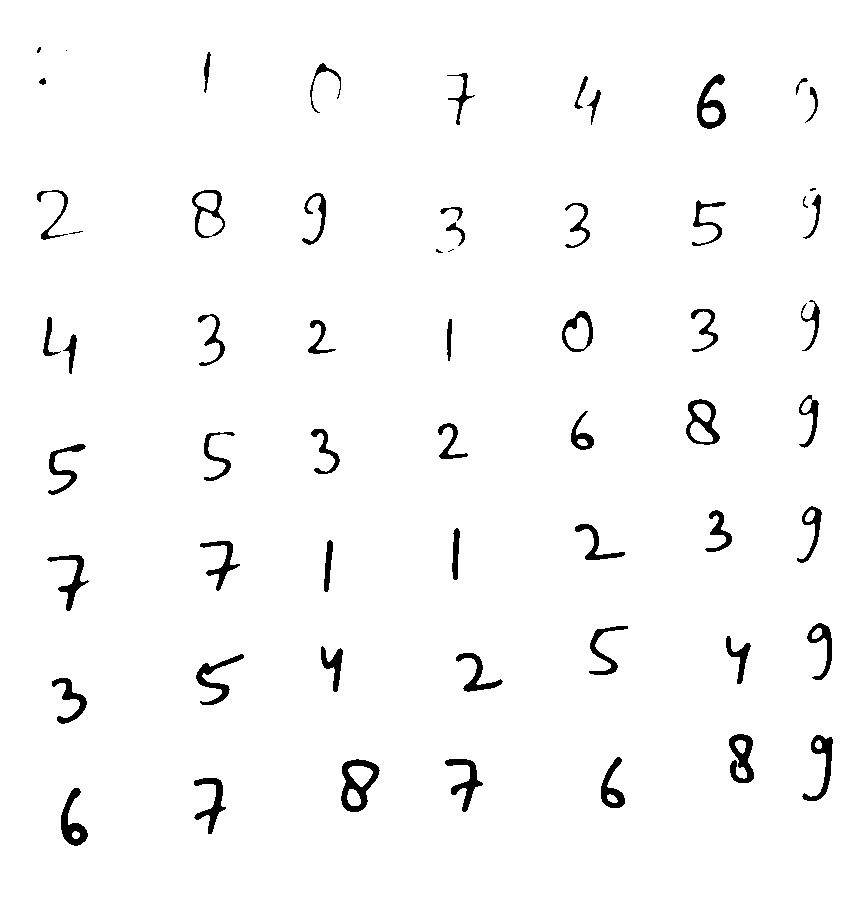 1 0 7 4 6
2 8 9 3 3 5 9
4 3 2 1 0 3 9
5 5 3 2 6 8 9
7 7 1 1 2 3 9
3 5 4 2 5 4 9
6 7 8 7 6 8 9